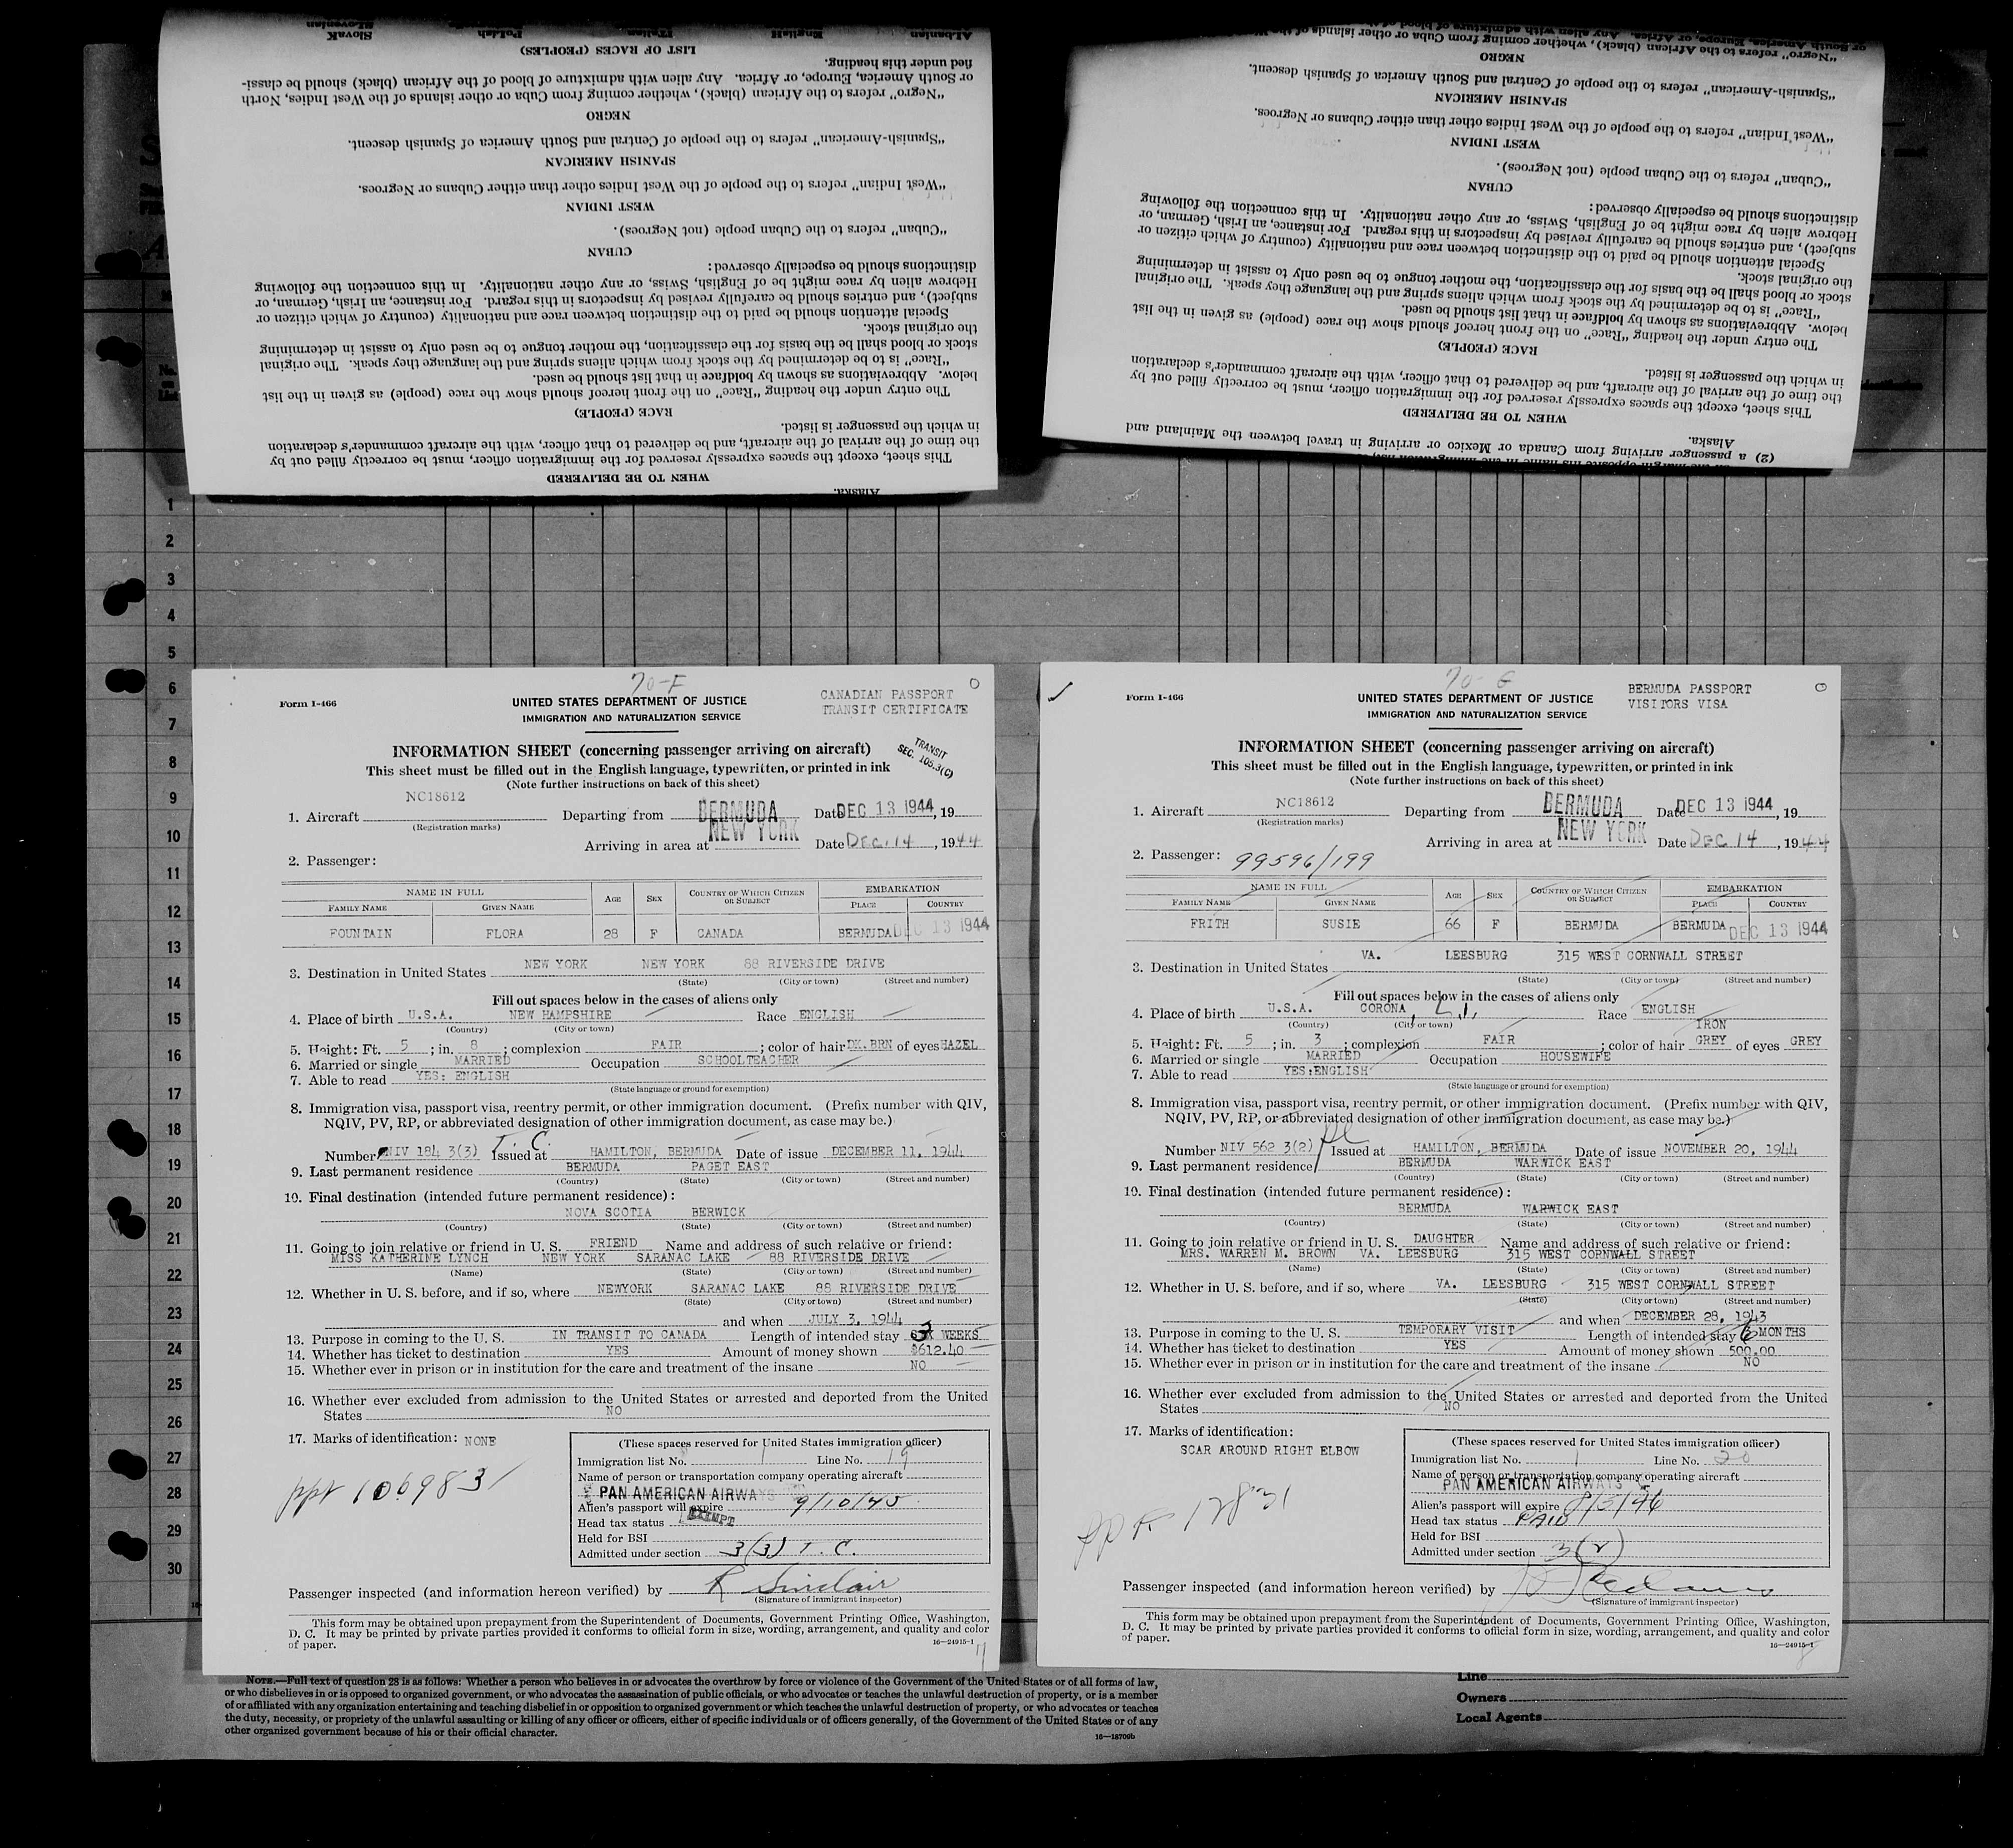 Albanian English Italian Polish Slovak
LIST OF RACES (PEOPLES)
fied under this heading.
or South America, Europe, or Africa. Any alien with admixture of blood of the African (black) should be classi-
"Negro" refers to the African (black), whether coming from Cuba or other islands of the West Indies, North
NEGRO
"Spanish-American" refers to the people of Central and South America of Spanish descent.
SPANISH AMERICAN
"West Indian" refers to the people of the West Indies other than either Cubans or Negroes.
WEST INDIAN
"Cuban" refers to the Cuban people (not Negroes).
CUBAN
distinctions should be especially observed:
Hebrew alien by race might be of English, Swiss, or any other nationality. In this connection the following
subject), and entries should be carefully revised by inspectors in this regard. For instance, an Irish, German, or
Special attention should be paid to the distinction between race and nationality (country of which citizen or
the original stock.
stock or blood shall be the basis for the classification, the mother tongue to be used only to assist in determining
"Race" is to be determined by the stock from which aliens spring and the language they speak. The original
below. Abbreviations as shown by boldface in that list should be used.
The entry under the heading "Race" on the front hereof should show the race (people) as given in the list
RACE (PEOPLE)
in which the passenger is listed.
the time of the arrival of the aircraft, and be delivered to that officer, with the aircraft commander's declaration
This sheet, except the spaces expressly reserved for the immigration officer, must be correctly filled out by
WHEN TO BE DELIVERED
Alaska.
or South America, Europe, or Africa. Any alien with admixture of blood of
"Negro" refers to the African (black), whether coming from Cuba or other islands of the
NEGRO
"Spanish-American" refers to the people of Central and South America of Spanish descent.
SPANISH AMERICAN
"West Indian" refers to the people of the West Indies other than either Cubans or Negroes.
WEST INDIAN
"Cuban" refers to the Cuban people (not Negroes).
CUBAN
distinctions should be especially observed:
Hebrew alien by race might be of English, Swiss, or any other nationality. In this connection the following
subject), and entries should be carefully revised by inspectors in this regard. For instance, an Irish, German, or
Special attention should be paid to the distinction between race and nationality (country of which citizen or
the original stock.
stock or blood shall be the basis for the classification, the mother tongue to be used only to assist in determining
"Race" is to be determined by the stock from which aliens spring and the language they speak. The original
below. Abbreviations as shown by boldface in that list should be used.
The entry under the heading "Race" on the front hereof should show the race (people) as given in the list
RACE (PEOPLE)
in which the passenger is listed.
the time of the arrival of the aircraft, and be delivered to that officer, with the aircraft commander's declaration
This sheet, except the spaces expressly reserved for the immigration officer, must be correctly filled out by
WHEN TO BE DELIVERED
Alaska.
(2) a passenger arriving from Canada or Mexico or arriving in travel between the Mainland and
1
2
3
4
5
6
7
8
9
10
11
12
13
14
15
16
17
18
19
20
21
22
23
24
25
26
27
28
29
30
70-F
Form I-466
UNITED STATES DEPARTMENT OF JUSTICE
IMMIGRATION AND NATURALIZATION SERVICE
CANADIAN PASSPORT
TRANSIT CERTIFICATE
TRANSIT
SEC. 105.3(C)
INFORMATION SHEET (concerning passenger arriving on aircraft)
This sheet must be filled out in the English language, typewritten, or printed in ink
(Note further instructions on back of this sheet)
1. Aircraft NC18612 Departing from BERMUDA Date DEC 13 1944, 19
(Registration marks)
Arriving in area at NEW YORK Date DEC. 14, 1944
2. Passenger:
NAME IN FULL AGE SEX COUNTRY OF WHICH CITIZEN OR SUBJECT EMBARKATION
FAMILY NAME GIVEN NAME PLACE COUNTRY
FOUNTAIN FLORA 28 F CANADA BERMUDA DEC 13 1944
3. Destination in United States NEW YORK NEW YORK 88 RIVERSIDE DRIVE
(State) (City or town) (Street and number)
Fill out spaces below in the cases of aliens only
4. Place of birth U.S.A. NEW HAMPSHIRE Race ENGLISH
(Country) (City or town)
5. Height: Ft. 5; in. 8; complexion FAIR; color of hair DK.BRN of eyes HAZEL
6. Married or single MARRIED Occupation SCHOOLTEACHER
7. Able to read YES: ENGLISH
(State language or ground for exemption)
8. Immigration visa, passport visa, reentry permit, or other immigration document. (Prefix number with QIV,
NQIV, PV, RP, or abbreviated designation of other immigration document, as case may be.)
Number NIV 184 3(3) T. C. Issued at HAMILTON, BERMUDA Date of issue DECEMBER 11, 1944
9. Last permanent residence BERMUDA PAGET EAST
(Country) (State) (City or town) (Street and number)
10. Final destination (intended future permanent residence):
NOVA SCOTIA BERWICK
(Country) (State) (City or town) (Street and number)
11. Going to join relative or friend in U. S. FRIEND Name and address of such relative or friend:
MISS KATHERINE LYNCH NEW YORK SARANAC LAKE 88 RIVERSIDE DRIVE
(Name) (State) (City or town) (Street and number)
12. Whether in U. S. before, and if so, where NEWYORK SARANAC LAKE 88 RIVERSIDE DRIVE
(State) (City or town) (Street and number)
and when JULY 3, 1944
13. Purpose in coming to the U. S. IN TRANSIT TO CANADA Length of intended stay WEEKS
14. Whether has ticket to destination YES Amount of money shown $612.40
15. Whether ever in prison or in institution for the care and treatment of the insane NO
16. Whether ever excluded from admission to the United States or arrested and deported from the United
States NO
17. Marks of identification: NONE
ppt 106983
(These spaces reserved for United States immigration officer)
Immigration list No. 1 Line No. 19
Name of person or transportation company operating aircraft
PAN AMERICAN AIRWAYS
Alien's passport will expire 9/10/45
Head tax status EXEMPT
Held for BSI
Admitted under section 3(3) T. C.
Passenger inspected (and information hereon verified) by R Sinclair
(Signature of immigrant inspector)
This form may be obtained upon prepayment from the Superintendent of Documents, Government Printing Office, Washington,
D. C. It may be printed by private parties provided it conforms to official form in size, wording, arrangement, and quality and color
of paper.
16—24915-1
70-G
Form I-466
UNITED STATES DEPARTMENT OF JUSTICE
IMMIGRATION AND NATURALIZATION SERVICE
BERMUDA PASSPORT
VISITORS VISA
INFORMATION SHEET (concerning passenger arriving on aircraft)
This sheet must be filled out in the English language, typewritten, or printed in ink
(Note further instructions on back of this sheet)
1. Aircraft NC18612 Departing from BERMUDA Date DEC 13 1944, 19
(Registration marks)
Arriving in area at NEW YORK Date DEC 14, 1944
2. Passenger: 99596/199
NAME IN FULL AGE SEX COUNTRY OF WHICH CITIZEN OR SUBJECT EMBARKATION
FAMILY NAME GIVEN NAME PLACE COUNTRY
FRITH SUSIE 66 F BERMUDA BERMUDA DEC 13 1944
3. Destination in United States VA. LEESBURG 315 WEST CORNWALL STREET
(State) (City or town) (Street and number)
Fill out spaces below in the cases of aliens only
4. Place of birth U.S.A. CORONA, L.I. Race ENGLISH
(Country) (City or town)
IRON
5. Height: Ft. 5; in. 3; complexion FAIR; color of hair GREY of eyes GREY
6. Married or single MARRIED Occupation HOUSEWIFE
7. Able to read YES:ENGLISH
(State language or ground for exemption)
8. Immigration visa, passport visa, reentry permit, or other immigration document. (Prefix number with QIV,
NQIV, PV, RP, or abbreviated designation of other immigration document, as case may be.)
Number NIV 562 3(2) Issued at HAMILTON, BERMUDA Date of issue NOVEMBER 20, 1944
9. Last permanent residence BERMUDA WARWICK EAST
(Country) (State) (City or town) (Street and number)
10. Final destination (intended future permanent residence):
BERMUDA WARWICK EAST
(Country) (State) (City or town) (Street and number)
11. Going to join relative or friend in U. S. DAUGHTER Name and address of such relative or friend:
MRS. WARREN M. BROWN VA. LEESBURG 315 WEST CORNWALL STREET
(Name) (State) (City or town) (Street and number)
12. Whether in U. S. before, and if so, where VA. LEESBURG 315 WEST CORNWALL STREET
(State) (City or town) (Street and number)
and when DECEMBER 28, 1943
13. Purpose in coming to the U. S. TEMPORARY VISIT Length of intended stay 6 MONTHS
14. Whether has ticket to destination YES Amount of money shown 500.00
15. Whether ever in prison or in institution for the care and treatment of the insane NO
16. Whether ever excluded from admission to the United States or arrested and deported from the United
States NO
17. Marks of identification:
SCAR AROUND RIGHT ELBOW
ppt 17831
(These spaces reserved for United States immigration officer)
Immigration list No. 1 Line No. 20
Name of person or transportation company operating aircraft
PAN AMERICAN AIRWAYS
Alien's passport will expire 8/3/46
Head tax status PAID
Held for BSI
Admitted under section 3(2)
Passenger inspected (and information hereon verified) by
(Signature of immigrant inspector)
This form may be obtained upon prepayment from the Superintendent of Documents, Government Printing Office, Washington,
D. C. It may be printed by private parties provided it conforms to official form in size, wording, arrangement, and quality and color
of paper.
16—24915-1
8
NOTE.—Full text of question 28 is as follows: Whether a person who believes in or advocates the overthrow by force or violence of the Government of the United States or of all forms of law,
or who disbelieves in or is opposed to organized government, or who advocates the assassination of public officials, or who advocates or teaches the unlawful destruction of property, or is a member
of or affiliated with any organization entertaining and teaching disbelief in or opposition to organized government or which teaches the unlawful destruction of property, or who advocates or teaches
the duty, necessity, or propriety of the unlawful assaulting or killing of any officer or officers, either of specific individuals or of officers generally, of the Government of the United States or of any
other organized government because of his or their official character.
16—18709b
Line
Owners
Local Agents